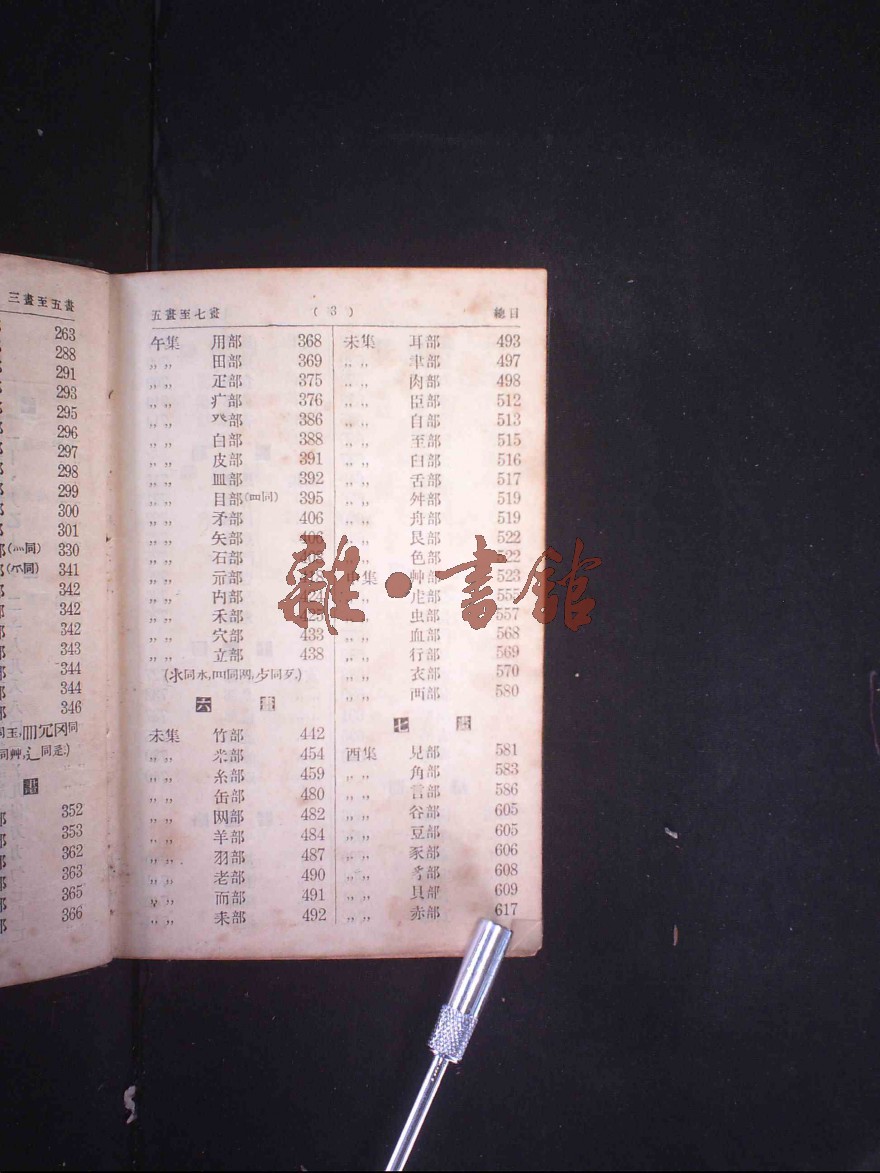 三畫至五畫
263
288
291
293
295
296
297
298
299
300
301
(灬同) 330
(爫同) 341
342
342
342
343
344
344
346
同艸,辶同辵)
畫
352
353
362
363
365
366
五畫至七畫 (3) 總目
午集 用部 368
,, ,, 田部 369
,, ,, 疋部 375
,, ,, 疒部 376
,, ,, 癶部 386
,, ,, 白部 388
,, ,, 皮部 391
,, ,, 皿部 392
,, ,, 目部(罒同) 395
,, ,, 矛部 406
,, ,, 矢部 406
,, ,, 石部
,, ,, 示部
,, ,, 禸部
,, ,, 禾部 425
,, ,, 穴部 433
,, ,, 立部 438
(氺同水,罒同网,歺同歹)
六畫
未集 竹部 442
,, ,, 米部 454
,, ,, 糸部 459
,, ,, 缶部 480
,, ,, 网部 482
,, ,, 羊部 484
,, ,, 羽部 487
,, ,, 老部 490
,, ,, 而部 491
,, ,, 耒部 492
未集 耳部 493
,, ,, 聿部 497
,, ,, 肉部 498
,, ,, 臣部 512
,, ,, 自部 513
,, ,, 至部 515
,, ,, 臼部 516
,, ,, 舌部 517
,, ,, 舛部 519
,, ,, 舟部 519
,, ,, 艮部 522
,, ,, 色部 522
申集 艸部 523
,, ,, 虍部 555
,, ,, 虫部 557
,, ,, 血部 568
,, ,, 行部 569
,, ,, 衣部 570
,, ,, 襾部 580
七畫
酉集 見部 581
,, ,, 角部 583
,, ,, 言部 586
,, ,, 谷部 605
,, ,, 豆部 605
,, ,, 豕部 606
,, ,, 豸部 608
,, ,, 貝部 609
,, ,, 赤部 617
雜·書館